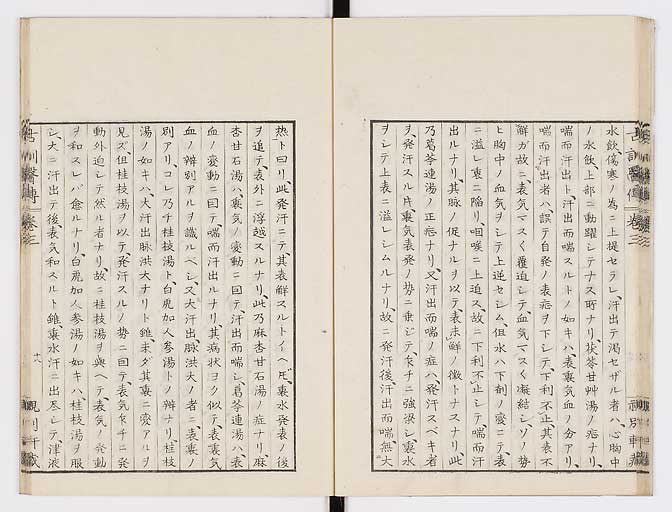 水飲、傷寒ノ為ニ上提セラレ、汗出テ渇セザル者ハ、心胸中
ノ水飲、上部ニ動躍シテナス所ナリ、茯苓甘草湯ノ症ナリ、
喘而汗出ト、汗出而喘スルトノ如キハ、表裏気血ノ分アリ、
喘而汗出者ハ、誤テ自発ノ表症ヲ下シテ、下利不止、其表不
解ガ故ニ、表気マスく覆迫シテ、血気マスく凝結シ、ソノ勢
ヒ胸中ノ血気ヲシテ上逆セシム、但水ハ下剤ノ変ニテ、表
ニ溢レ裏ニ陥リ、咽喉ニ上迫ス、故ニ下利不止シテ、喘而汗
出ルナリ、其脉ノ促ナルヲ以テ、表未解ノ徴トナスナリ、此
乃葛芩連湯ノ正症ナリ、又汗出而喘ノ症ハ、発汗スベキ者
ヲ、発汗スル片、裏気表発ノ勢ニ乗ジテ、卒チニ強梁シ、裏水
ヲシテ上表ニ溢レシムルナリ、故ニ発汗後、汗出而喘無大
熱ト曰リ、此発汗ニテ、其表解スルトイヘ𪜈、裏水発表ノ後
ヲ追テ、表外ニ浮越スルナリ、此乃麻杏甘石湯ノ症ナリ、麻
杏甘石湯ハ、裏気ノ変動ニ因テ汗出而喘シ、葛芩連湯ハ、表
血ノ変動ニ因テ、喘而汗出ルナリ、其病状ヲク似テ、表裏気
血ノ辨別アルヲ識ルベシ、又大汗出、脉洪大ノ者ニ、表裏ノ
別アリ、コレ乃チ桂枝湯ト、白虎加人参湯トノ辨ナリ、桂枝
湯ノ如キハ、大汗出脉洪大ナリト雖、未ダ其裏ニ変アルヲ
見ズ、但桂枝湯ヲ以テ、発汗スルノ勢ニ因テ、表気卒チニ発
動外迫シテ然ル者ナリ、故ニ桂枝湯ヲ與ヘテ、表気ノ発動
ヲ和スレバ愈ルナリ、白虎加人参湯ノ如キハ、桂枝湯ヲ服
シ、大ニ汗出テ後、表気和スルト雖、裏水汗ニ出尽シテ、津液
古訓醫傳 巻三
十八